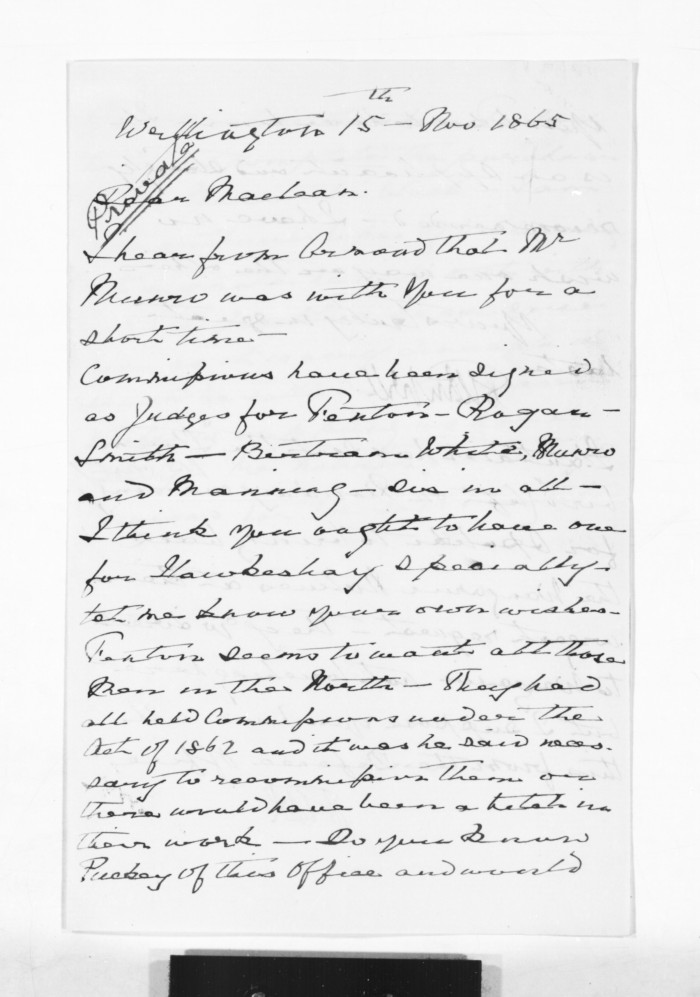 Wellington 15th Nov 1865
Private
Dear Maclean.
I hear from Ormond that Mr
Munro was with you for a
short time
Commissions have been signed
as Judges for Fenton - Rogan -
Smith - Bertram White, Munro
and Manning - six in all -
I think you ought to have one
for Hawkesbay specially.
let me know your own wishes -
Fenton seems to want all those
men in the North - They had
all held Commissions under the
Act of 1862 and it was he said neces-
sary to recommission them or
there would have been a hitch in
their work - Do you know
Puckey of this Office and would